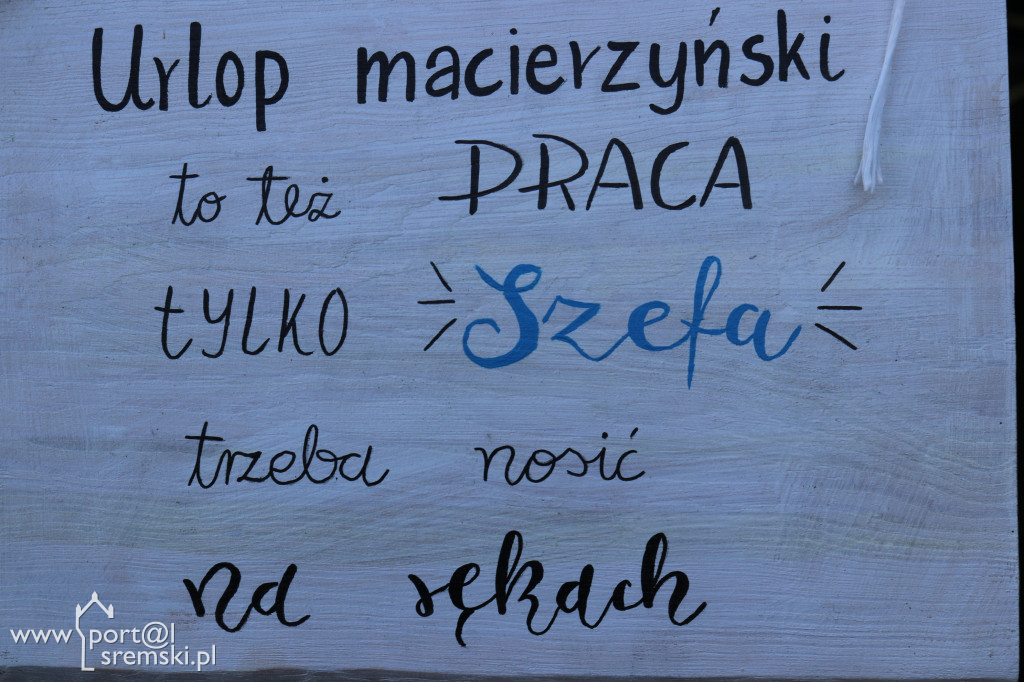 Urlop macierzyński
to też PRACA
tYLKO Szefa
trzeba nosić
na rękach
www.port@l
sremski.pl